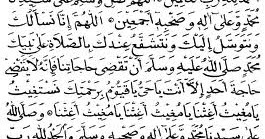 مُحَمَّدٍ وَعَلَى آلِهِ وَصَحْبِهِ أَجْمَعِينَ ۞ اَللّٰهُمَّ إِنَّا نَسْأَلُكَ
وَنَتَوَسَّلُ إِلَيْكَ وَنَتَشَفَّعُ عِنْدَكَ بِالصَّلَاةِ عَلَى نَبِيِّكَ
مُحَمَّدٍ صَلَّى اللّٰهُ عَلَيْهِ وَسَلَّمَ أَنْ تَقْضِيَ حَاجَاتِنَا فَإِنَّهُ لَا يَقْضِي
حَاجَةَ أَحَدٍ إِلَّا أَنْتَ يَا حَيُّ يَا قَيُّومُ بِرَحْمَتِكَ نَسْتَغِيثُ
يَا مُغِيثُ أَغِثْنَا يَا مُغِيثُ أَغِثْنَا يَا مُغِيثُ أَغِثْنَا ۞ وَصَلَّى اللّٰهُ